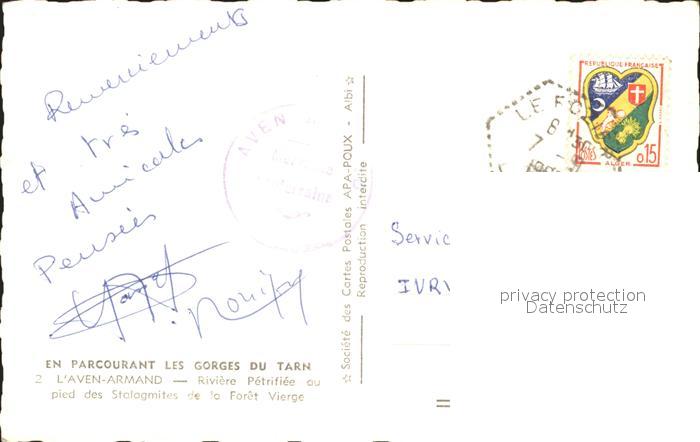 Remerciements
et très
Amicales
Pensées
EN PARCOURANT LES GORGES DU TARN
2 L'AVEN-ARMAND — Rivière Pétrifiée au
pied des Stalagmites de la Forêt Vierge
AVEN
☆ Société des Cartes Postales APA-POUX - Albi ☆
Reproduction interdite
LE ROZ
REPUBLIQUE FRANÇAISE
POSTES
ALGER
0,15
Servic
IVRY
privacy protection
Datenschutz